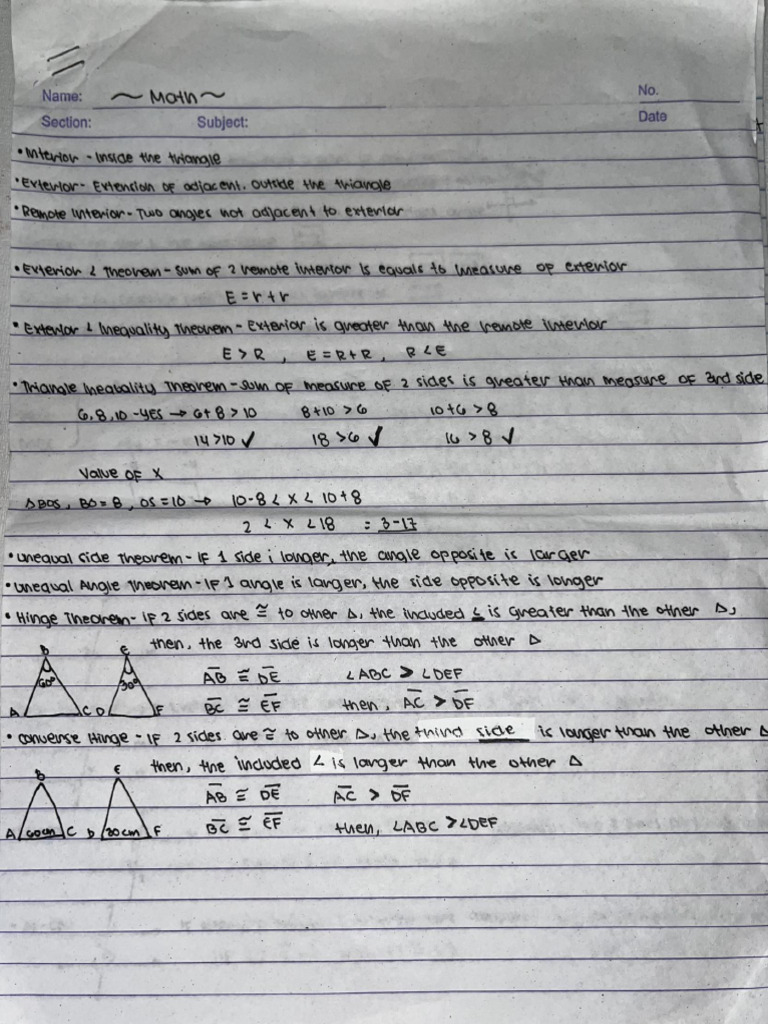 Name: ~ Math ~ No.
Section: Subject: Date
• Interior - Inside the triangle
• Exterior - Extension of adjacent. outside the triangle
• Remote Interior - Two angles not adjacent to exterior
• Exterior ∠ Theorem - sum of 2 remote interior is equals to measure op exterior
E = r + r
• Exterior ∠ Inequality Theorem - Exterior is greater than the remote interior
E > R , E = R + R , R < E
• Triangle Inequality Theorem - sum of measure of 2 sides is greater than measure of 3rd side
6, 8, 10 - yes → 6 + 8 > 10 8 + 10 > 6 10 + 6 > 8
14 > 10 ✓ 18 > 6 ✓ 16 > 8 ✓
Value of x
△BOS, BO = 8, OS = 10 → 10 - 8 < x < 10 + 8
2 < x < 18 = 3-17
• unequal side Theorem - If 1 side i longer, the angle opposite is larger
• unequal Angle Theorem - IF 1 angle is larger, the side opposite is longer
• Hinge Theorem - if 2 sides are ≅ to other △, the included ∠ is greater than the other △,
then, the 3rd side is longer than the other △
B E
60° 30° A̅B̅ ≅ D̅E̅ ∠ABC > ∠DEF
A C D F B̅C̅ ≅ E̅F̅ then, A̅C̅ > D̅F̅
• converse Hinge - If 2 sides are ≅ to other △, the third side is longer than the other △
then, the included ∠ is larger than the other △
B E
A̅B̅ ≅ D̅E̅ A̅C̅ > D̅F̅
A 60cm C D 30cm F B̅C̅ ≅ E̅F̅ then, ∠ABC > ∠DEF